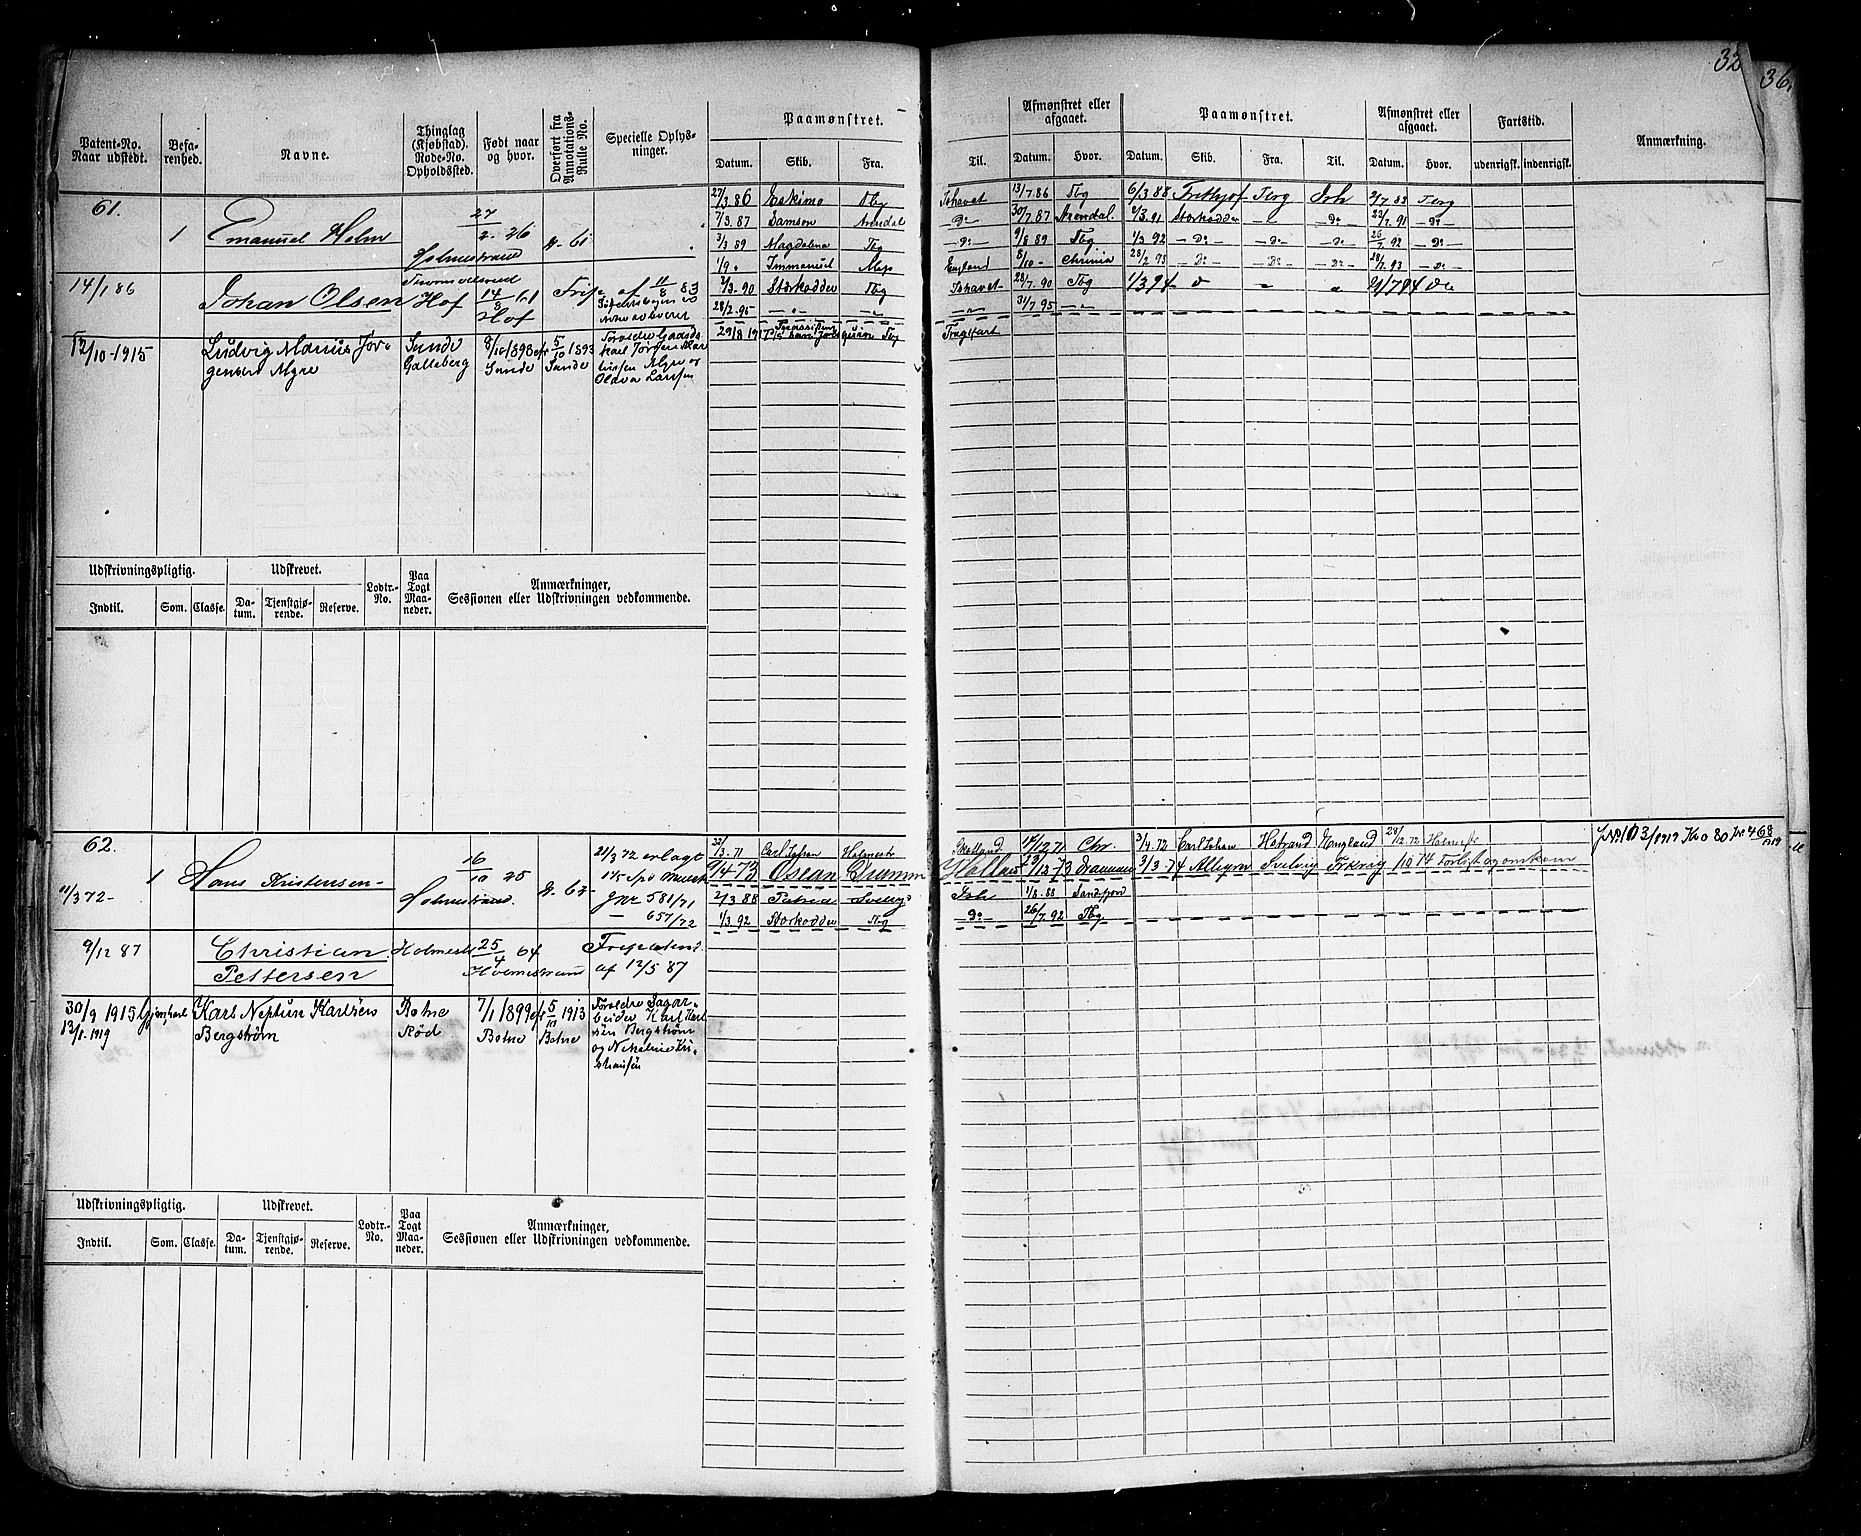 32
36.
Patent-No. Naar udstedt.
Befarenhed.
Navne.
Thinglag (Kjøbstad). Rode-No. Opholdssted.
Født naar og hvor.
Overført fra Annotations-Rulle No.
Specielle Oplysninger.
Paamønstret.
Datum. Skib. Fra. Til.
Afmønstret eller afgaaet.
Datum. Hvor.
Paamønstret.
Datum. Skib. Fra. Til.
Afmønstret eller afgaaet.
Datum. Hvor.
Fartstid.
udenrigsk. indenrigsk.
Anmærkning.
61.
1 Emanuel Holm Holmestrand 27/2. 26 61
27/3.86 Eskimo Tbg Ishavet 13/7.86 Tbg 6/3 88 Frithjof Terg Ish 2/7.88 Terg
7/3.87 Samson Arendal - Do - 30/7.87 Arendal. Storkodder - - Do - 23/7.91 - Do -
3/3 89 Magdalena Tbg - Do - 9/8 89 Tbg 1/3 92 - Do - - Do - - Do - 26/7.92 - Do -
1/9 " Immanuel England 8/10 - Chrinia 28/2 93 - Do - - Do - - Do - 28/7.93 - Do -
14/1 86 Johan Olsen Hof 14/8 61 Hof af 11/8 83
90 Storkodder Tbg Ishavet 28/7.90 Tbg 1/3 94
28/2.95 31/7 95
12/10-1915 Ludvig Marius Jørgensen Myre Sande Galleberg 8/10 1898 Sande 5/10 1893 Sande
Forældre Gaardskarl Jørgen
Myre og
Olava Larsen
29/8 1917 Tbg Fragtfart
Udskrivningspligtig.
Udskrevet.
Lodtr.-No.
Paa Togt Maaneder.
Anmærkninger,
Sessionen eller Udskrivningen vedkommende.
Indtil. Som. Classe. Datum. Tjenstgjørende. Reserve.
62.
11/3 72- 1 Hans Kristensen- Holmestrand. 16/10 25 62
21/3 72 erlagt
Jnr 581/71
657/72
3.71 Carl Johan Holmestr 17/12 71 Chr. 3/4.72 Carl Johan Hstrand England 28/12.72 Holmest
9/4-73 Oscar Dramm Holland 23/12 73 Drammen 3/3.74 Allegra Svelvig 1/10 74 Forlist og omkom
2/3 88 Patria Ish 1/8.88 Sandefjord
1/3.92 Storkodder Tbg - Do - 26/7.92 Tbg
9/12 87 Christian Pettersen Holmest 25/4 64 Holmestrand
af 12/5 87
30/9 1915
13/1.1919
Karl Neptun Karlsen Bergstrøm Botne Rød 7/1 1899 Botne 5/ 1913 Botne
Forældre Sagarbeider Karl Karlsen Bergstrøm
og
468/1919
Udskrivningspligtig.
Udskrevet.
Lodtr.-No.
Paa Togt Maaneder.
Anmærkninger,
Sessionen eller Udskrivningen vedkommende.
Indtil. Som. Classe. Datum. Tjenstgjørende. Reserve.